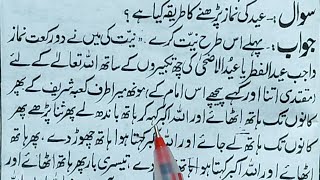 سوال :- عید کی نماز پڑھنے کا طریقہ کیا ہے ؟
جواب :- پہلے اس طرح نیت کرے ”نیت کی میں نے دو رکعت نماز
واجب عید الفطر یا عید الاضحیٰ کی چھ تکبیروں کے ساتھ اللہ تعالےٰ کے لئے
(مقتدی اتنا اور کہے پیچھے اس امام کے) منھ میرا طرف کعبہ شریف کے پھر
کانوں تک ہاتھ اٹھائے اور اللہ اکبر کہہ کر ہاتھ باندھ لے پھر ثنا پڑھے پھر
کانوں تک ہاتھ لے جائے اور اللہ اکبر کہتا ہوا ہاتھ چھوڑ دے، پھر ہاتھ
اٹھائے اور اللہ اکبر کہتا ہوا ہاتھ چھوڑ دے، تیسری بار پھر ہاتھ اٹھائے اور